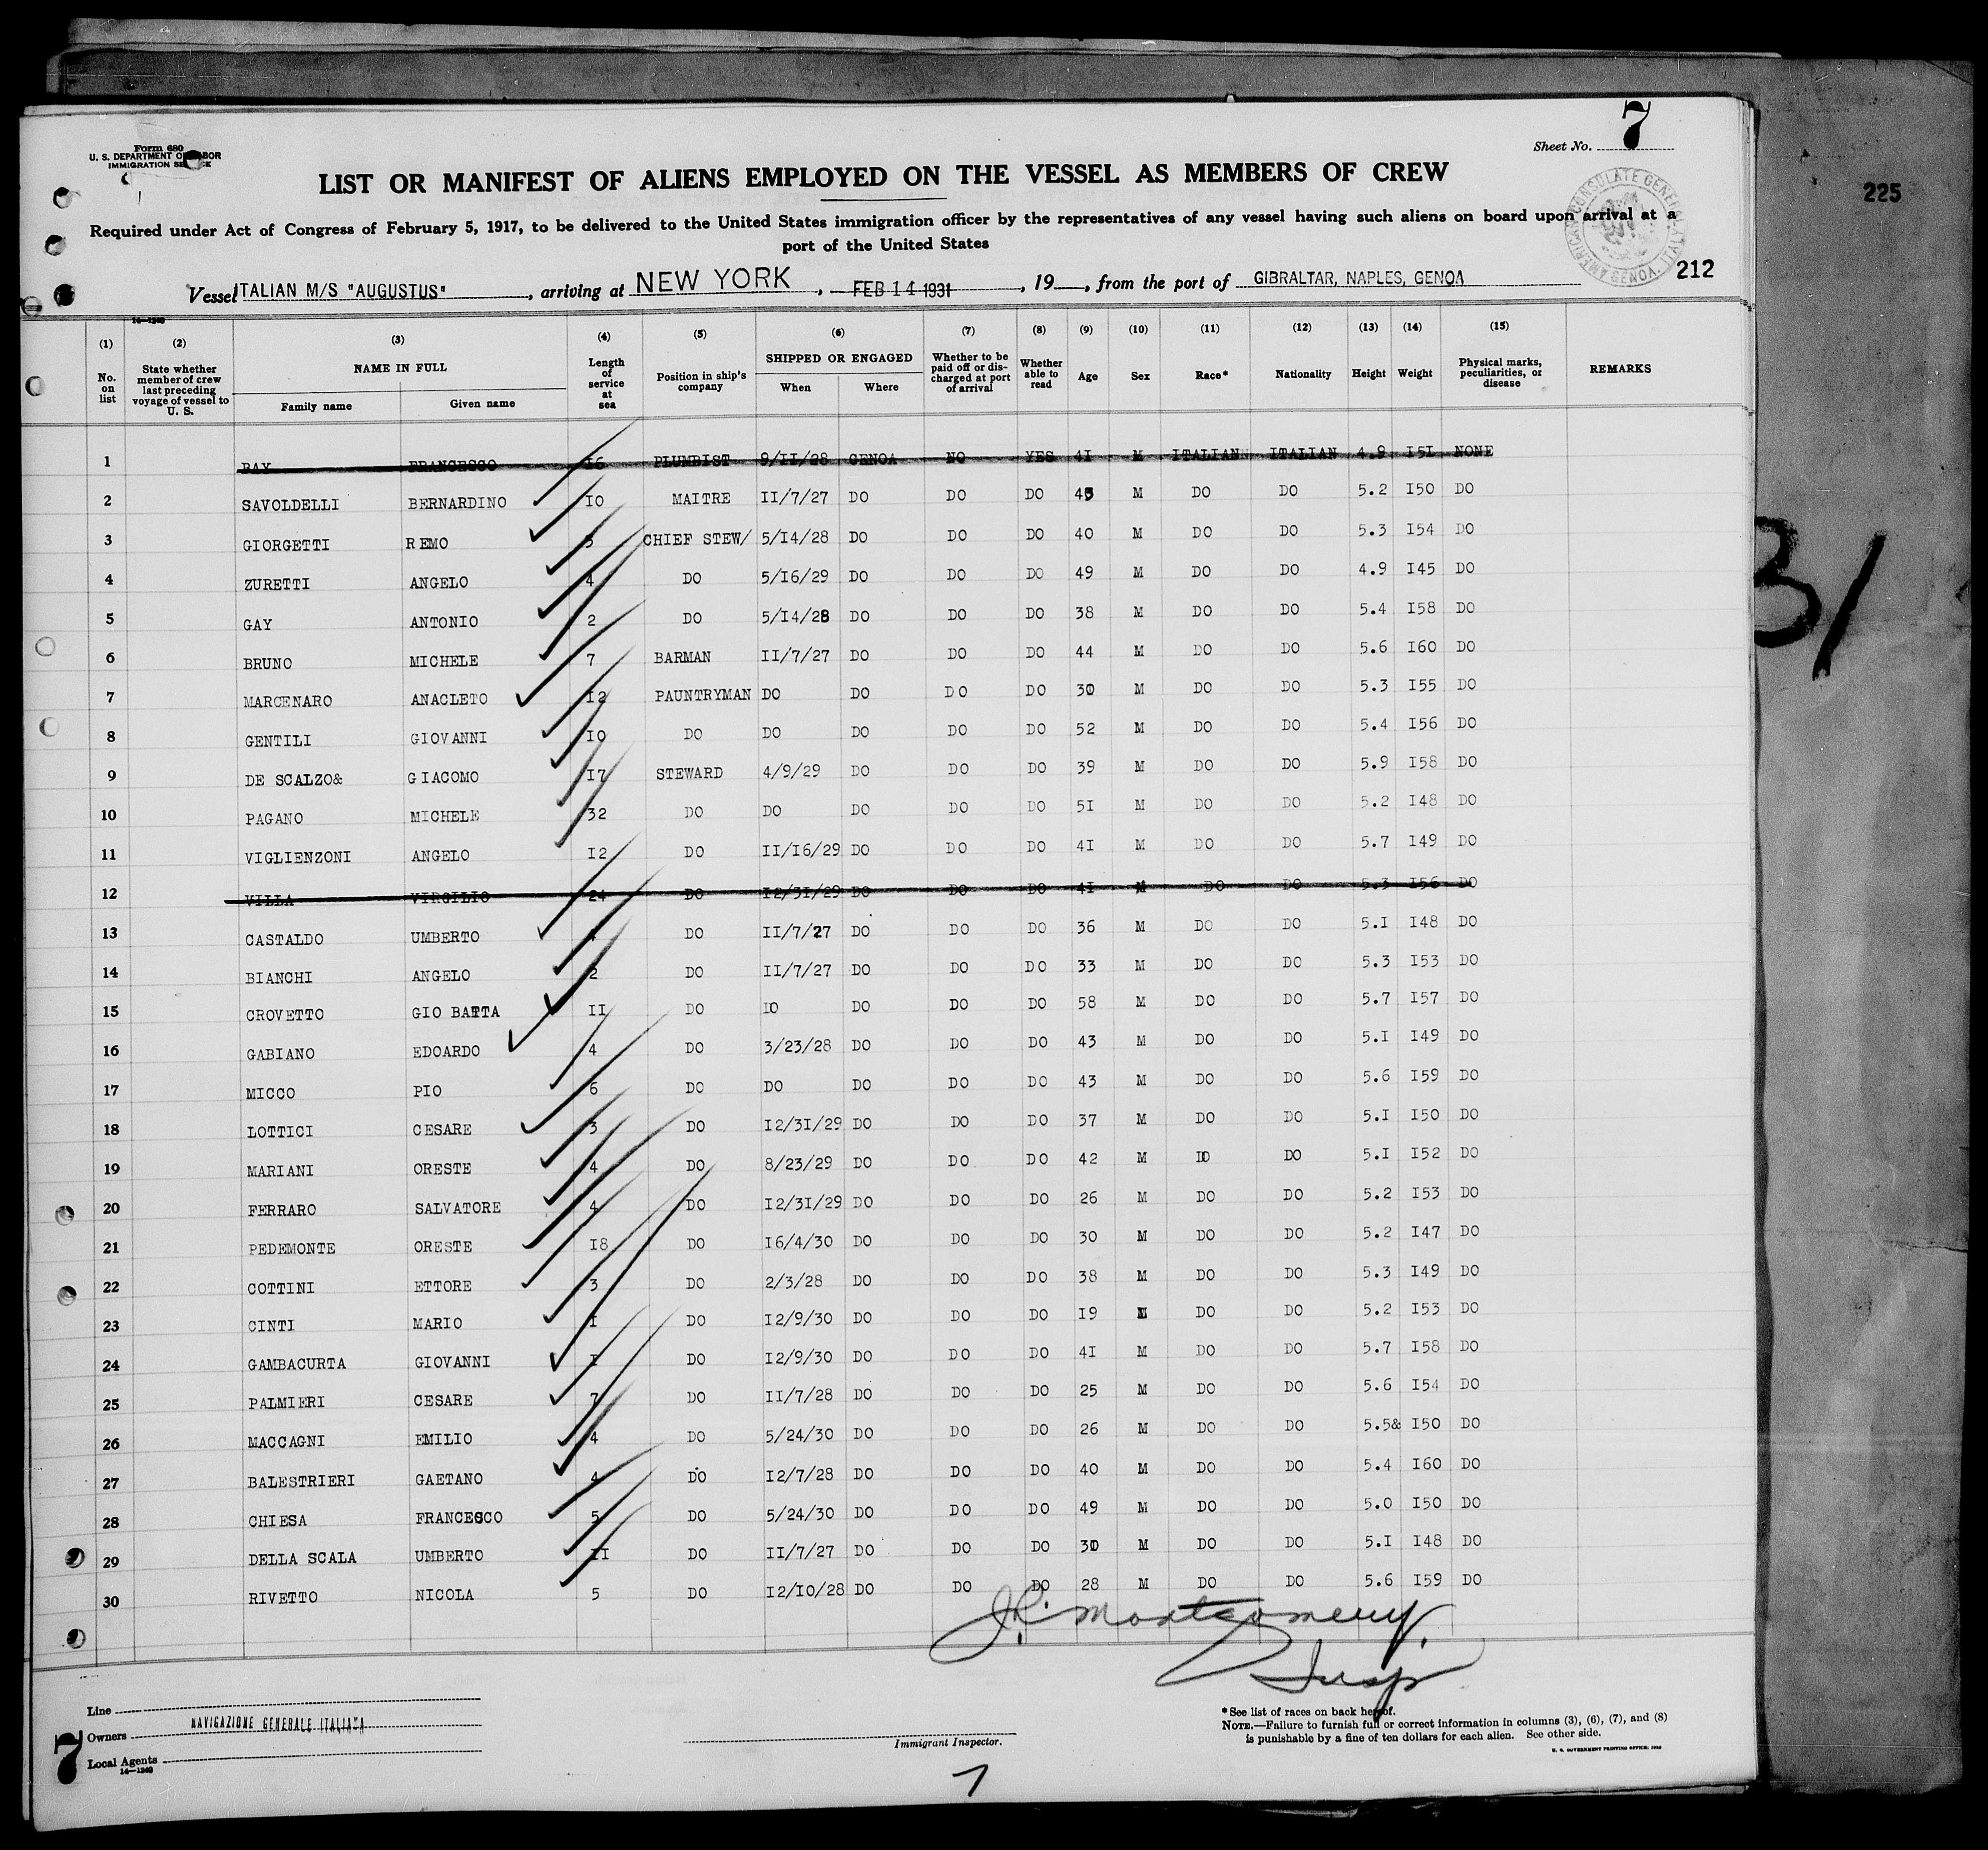 7
Form 680
U. S. DEPARTMENT OF LABOR
IMMIGRATION SERVICE
Sheet No. 7
LIST OR MANIFEST OF ALIENS EMPLOYED ON THE VESSEL AS MEMBERS OF CREW
AMERICAN CONSULATE GENERAL GENOA, ITALY
225
Required under Act of Congress of February 5, 1917, to be delivered to the United States immigration officer by the representatives of any vessel having such aliens on board upon arrival at a
port of the United States
212
Vessel ITALIAN M/S "AUGUSTUS", arriving at NEW YORK, FEB 14 1931, 19__, from the port of GIBRALTAR, NAPLES, GENOA
14—1240
(1) No. on list (2) State whether member of crew last preceding voyage of vessel to U. S. (3) NAME IN FULL Family name Given name (4) Length of service at sea (5) Position in ship's company (6) SHIPPED OR ENGAGED When Where (7) Whether to be paid off or discharged at port of arrival (8) Whether able to read (9) Age (10) Sex (11) Race* (12) Nationality (13) Height (14) Weight (15) Physical marks, peculiarities, or disease REMARKS
1 BAY FRANCESCO 16 PLUMBIST 9/II/28 GENOA NO YES 4I M ITALIAN ITALIAN 4.9 I5I NONE
2 SAVOLDELLI BERNARDINO IO MAITRE II/7/27 DO DO DO 45 M DO DO 5.2 I50 DO
3 GIORGETTI REMO 5 CHIEF STEW/ 5/I4/28 DO DO DO 40 M DO DO 5.3 I54 DO
4 ZURETTI ANGELO 4 DO 5/I6/29 DO DO DO 49 M DO DO 4.9 I45 DO
5 GAY ANTONIO 2 DO 5/I4/28 DO DO DO 38 M DO DO 5.4 I58 DO
6 BRUNO MICHELE 7 BARMAN II/7/27 DO DO DO 44 M DO DO 5.6 I60 DO
7 MARCENARO ANACLETO I2 PAUNTRYMAN DO DO DO DO 30 M DO DO 5.3 I55 DO
8 GENTILI GIOVANNI IO DO DO DO DO DO 52 M DO DO 5.4 I56 DO
9 DE SCALZO& GIACOMO I7 STEWARD 4/9/29 DO DO DO 39 M DO DO 5.9 I58 DO
10 PAGANO MICHELE 32 DO DO DO DO DO 5I M DO DO 5.2 I48 DO
11 VIGLIENZONI ANGELO I2 DO II/I6/29 DO DO DO 4I M DO DO 5.7 I49 DO
12 VILLA VIRGILIO 24 DO I2/3I/29 DO DO DO 4I M DO DO 5.3 I56 DO
13 CASTALDO UMBERTO DO II/7/27 DO DO DO 36 M DO DO 5.I I48 DO
14 BIANCHI ANGELO 2 DO II/7/27 DO DO DO 33 M DO DO 5.3 I53 DO
15 CROVETTO GIO BATTA II DO DO DO DO DO 58 M DO DO 5.7 I57 DO
16 GABIANO EDOARDO 4 DO 3/23/28 DO DO DO 43 M DO DO 5.I I49 DO
17 MICCO PIO 6 DO DO DO DO DO 43 M DO DO 5.6 I59 DO
18 LOTTICI CESARE 3 DO I2/3I/29 DO DO DO 37 M DO DO 5.I I50 DO
19 MARIANI ORESTE 4 DO 8/23/29 DO DO DO 42 M DO DO 5.I I52 DO
20 FERRARO SALVATORE 4 DO I2/3I/29 DO DO DO 26 M DO DO 5.2 I53 DO
21 PEDEMONTE ORESTE I8 DO I6/4/30 DO DO DO 30 M DO DO 5.2 I47 DO
22 COTTINI ETTORE 3 DO 2/3/28 DO DO DO 38 M DO DO 5.3 I49 DO
23 CINTI MARIO I DO I2/9/30 DO DO DO I9 M DO DO 5.2 I53 DO
24 GAMBACURTA GIOVANNI I DO I2/9/30 DO DO DO 4I M DO DO 5.7 I58 DO
25 PALMIERI CESARE 7 DO II/7/28 DO DO DO 25 M DO DO 5.6 I54 DO
26 MACCAGNI EMILIO 4 DO 5/24/30 DO DO DO 26 M DO DO 5.5& I50 DO
27 BALESTRIERI GAETANO 4 DO I2/7/28 DO DO DO 40 M DO DO 5.4 I60 DO
28 CHIESA FRANCESCO 5 DO 5/24/30 DO DO DO 49 M DO DO 5.0 I50 DO
29 DELLA SCALA UMBERTO II DO II/7/27 DO DO DO 30 M DO DO 5.I I48 DO
30 RIVETTO NICOLA 5 DO I2/I0/28 DO DO DO 28 M DO DO 5.6 I59 DO
31
J.P. Montgomery
Insp
Line
Owners NAVIGAZIONE GENERALE ITALIANA
Local Agents
14—1240
7
Immigrant Inspector.
*See list of races on back hereof.
NOTE.—Failure to furnish full or correct information in columns (3), (6), (7), and (8)
is punishable by a fine of ten dollars for each alien. See other side.
U. S. GOVERNMENT PRINTING OFFICE: 1930
7